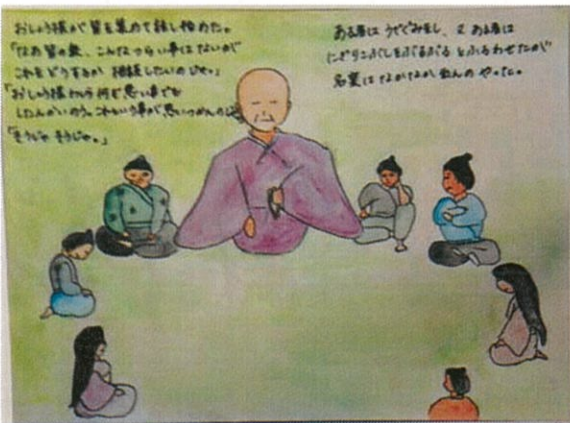 おしょう様が皆を集めて話し始めた。
「なあ皆の衆、こんなつらい事はないが
これをどうするか 相談したいのじゃ。」
「おしょう様 わしら何ぞ思い事でも
したんかいのう。これという事が思いつかんのじゃ
「そうじゃ そうじゃ。」
ある者はうでぐみをし、又 ある者は
にぎりこぶしをぶるぶる とふるわせたが
名案は なかなか 出んの やった。